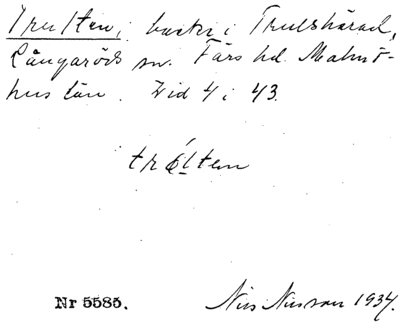 Trulten, i backe i Trulshärad,
Långaröds sn. Färs hd. Malmö-
hus län. Zid 4 i 43.
trúlten
Nr 5585. Nils Nilsson 1934.